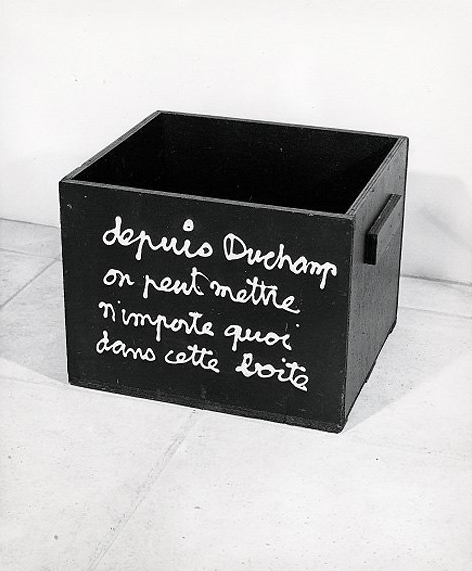 depuis Duchamp
on peut mettre
n'importe quoi
dans cette boite